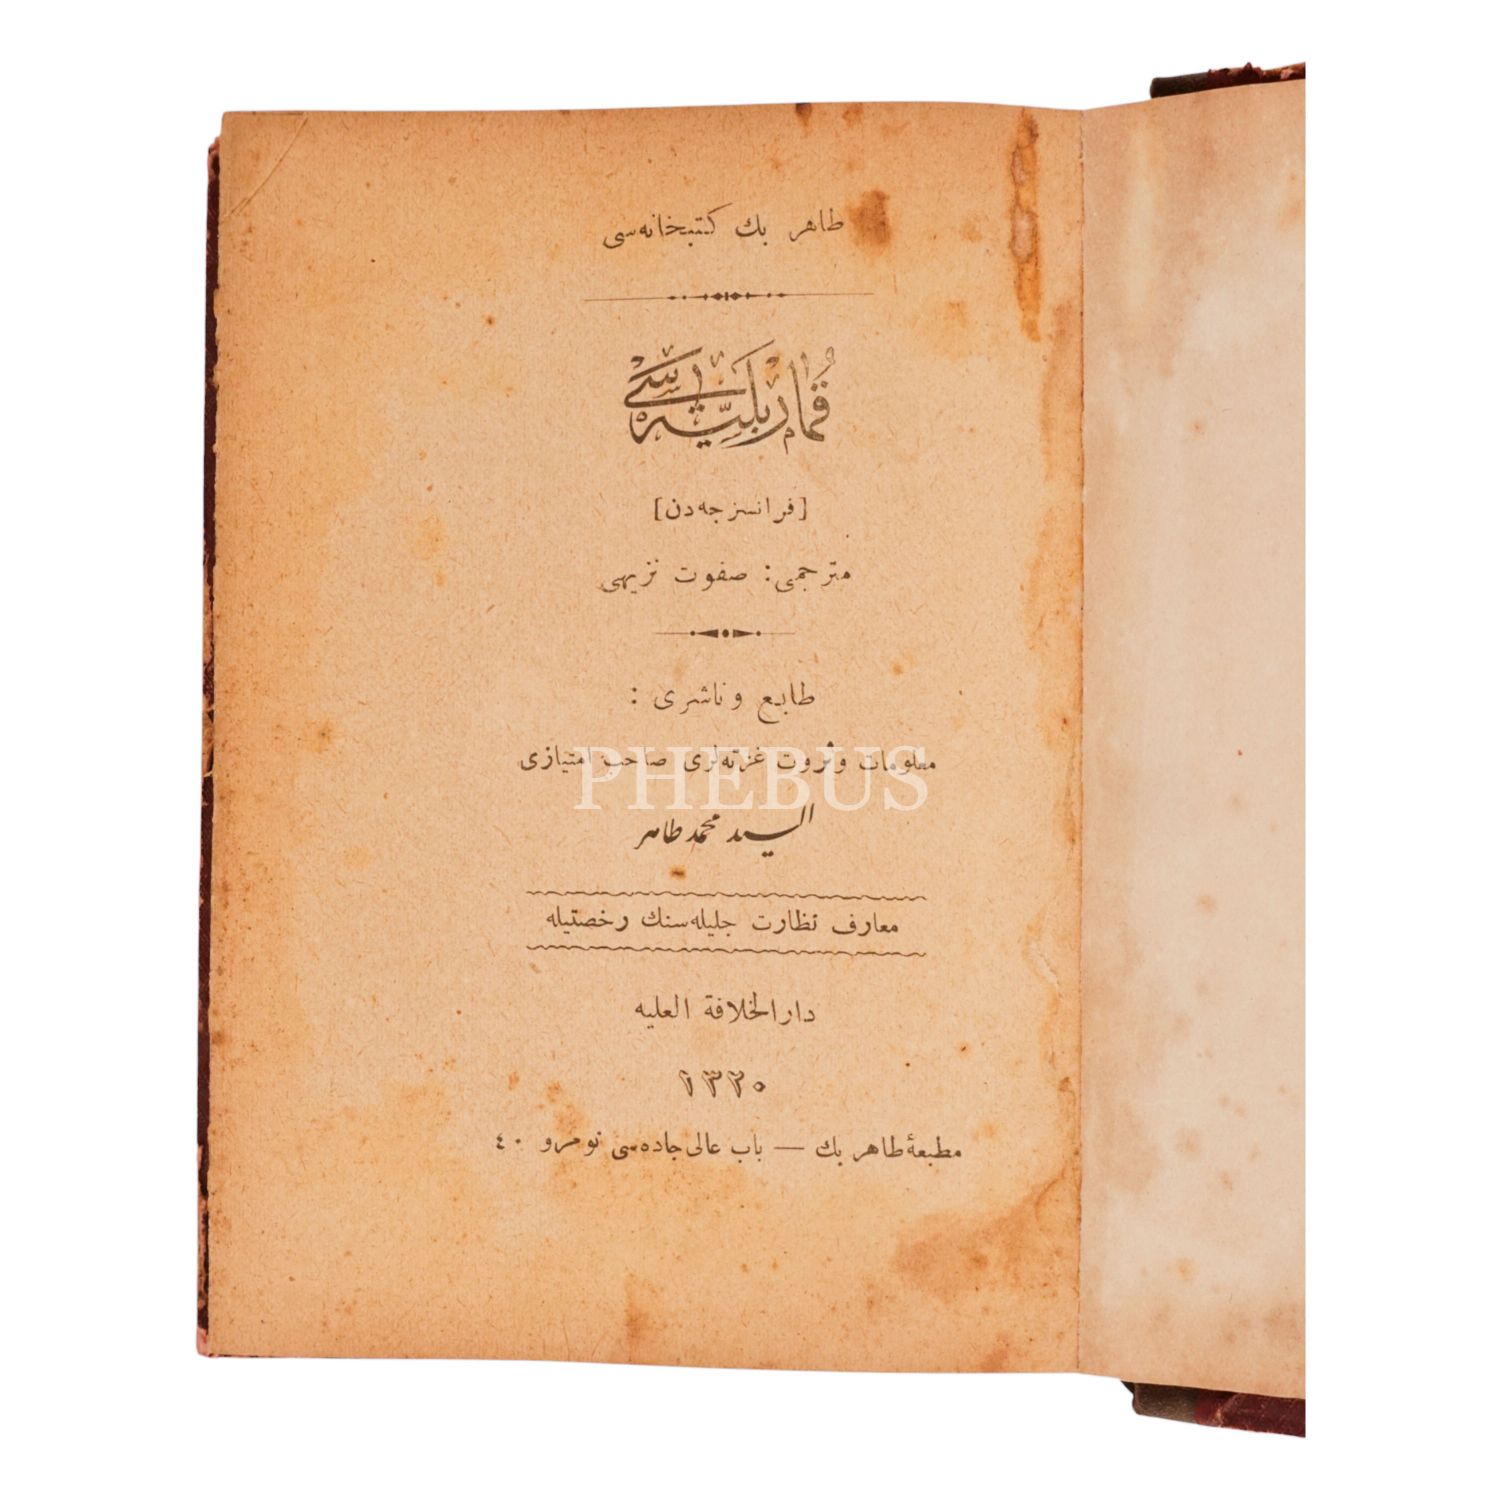 طاهر بك كتبخانه‌سی
قُمار بليّه‌سی
[فرانسزجه‌دن]
مترجمی: صفوت نزیهی
طابع و ناشری :
معلومات و ثروت غزته‌لری صاحب امتیازی
PHEBUS
السید محمد طاهر
معارف نظارت جلیله‌سنك رخصتیله
دار الخلافة العلیه
١٣٢٠
مطبعۀ طاهر بك — باب عالی جاده‌سی نومرو ٤٠